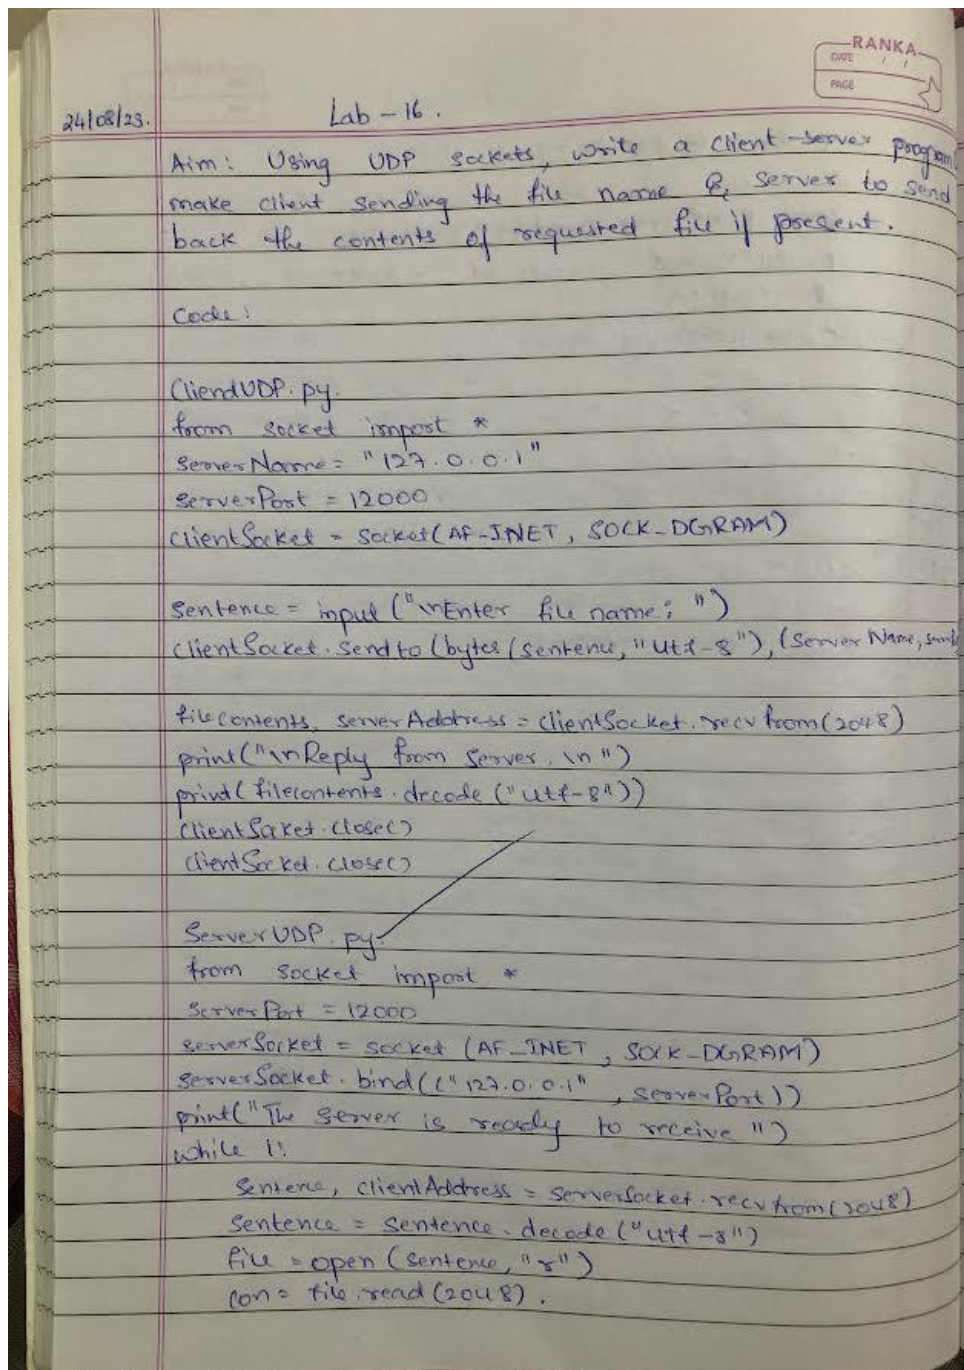 RANKA
DATE / /
PAGE
24/08/23.
Lab - 16.
Aim: Using UDP sockets, write a client-server program
make client sending the file name & server to send
back the contents of requested file if present.
Code:
CliendUDP.py.
from socket import *
serverName = "127.0.0.1"
serverPort = 12000
clientSocket = socket(AF_INET, SOCK_DGRAM)
sentence = input("\nEnter file name: ")
clientSocket.sendto(bytes(sentence, "utf-8"), (serverName,
filecontents, serverAddress = clientSocket.recvfrom(2048)
print("\nReply from server.\n")
print(filecontents.decode("utf-8"))
clientSocket.close()
clientSocket.close()
ServerUDP.py.
from socket import *
serverPort = 12000
serverSocket = socket (AF_INET, SOCK_DGRAM)
serverSocket.bind(("127.0.0.1", serverPort))
print("The server is ready to receive")
while 1:
sentence, clientAddress = serverSocket.recvfrom(2048)
sentence = sentence.decode("utf-8")
file = open (sentence, "r")
con = file.read(2048).